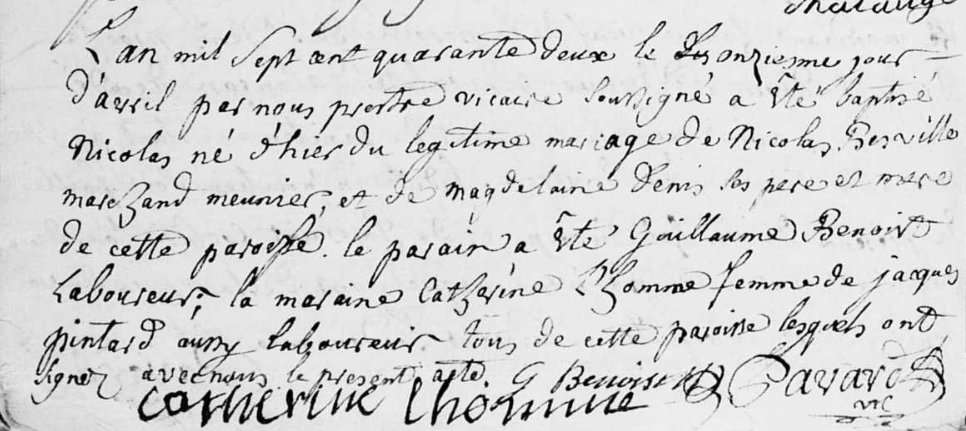 L'an mil sept cent quarante deux le onzienne jour
d'avril par nous prestre vicaire soussigné a été baptisé
Nicolas né d'hier du legitime mariage de Nicolas Berville
marchand meunier, et de magdelaine Denis ses pere et mere
de cette paroisse. le parain a été Guillaume Benoist
Laboureur, la maraine Catherine L'homme femme de jacques
pintard aussy Laboureur tous de cette paroisse lesquels ont
signez avec nous le present acte. G Benoist Pavard
catherine Lhomme vic